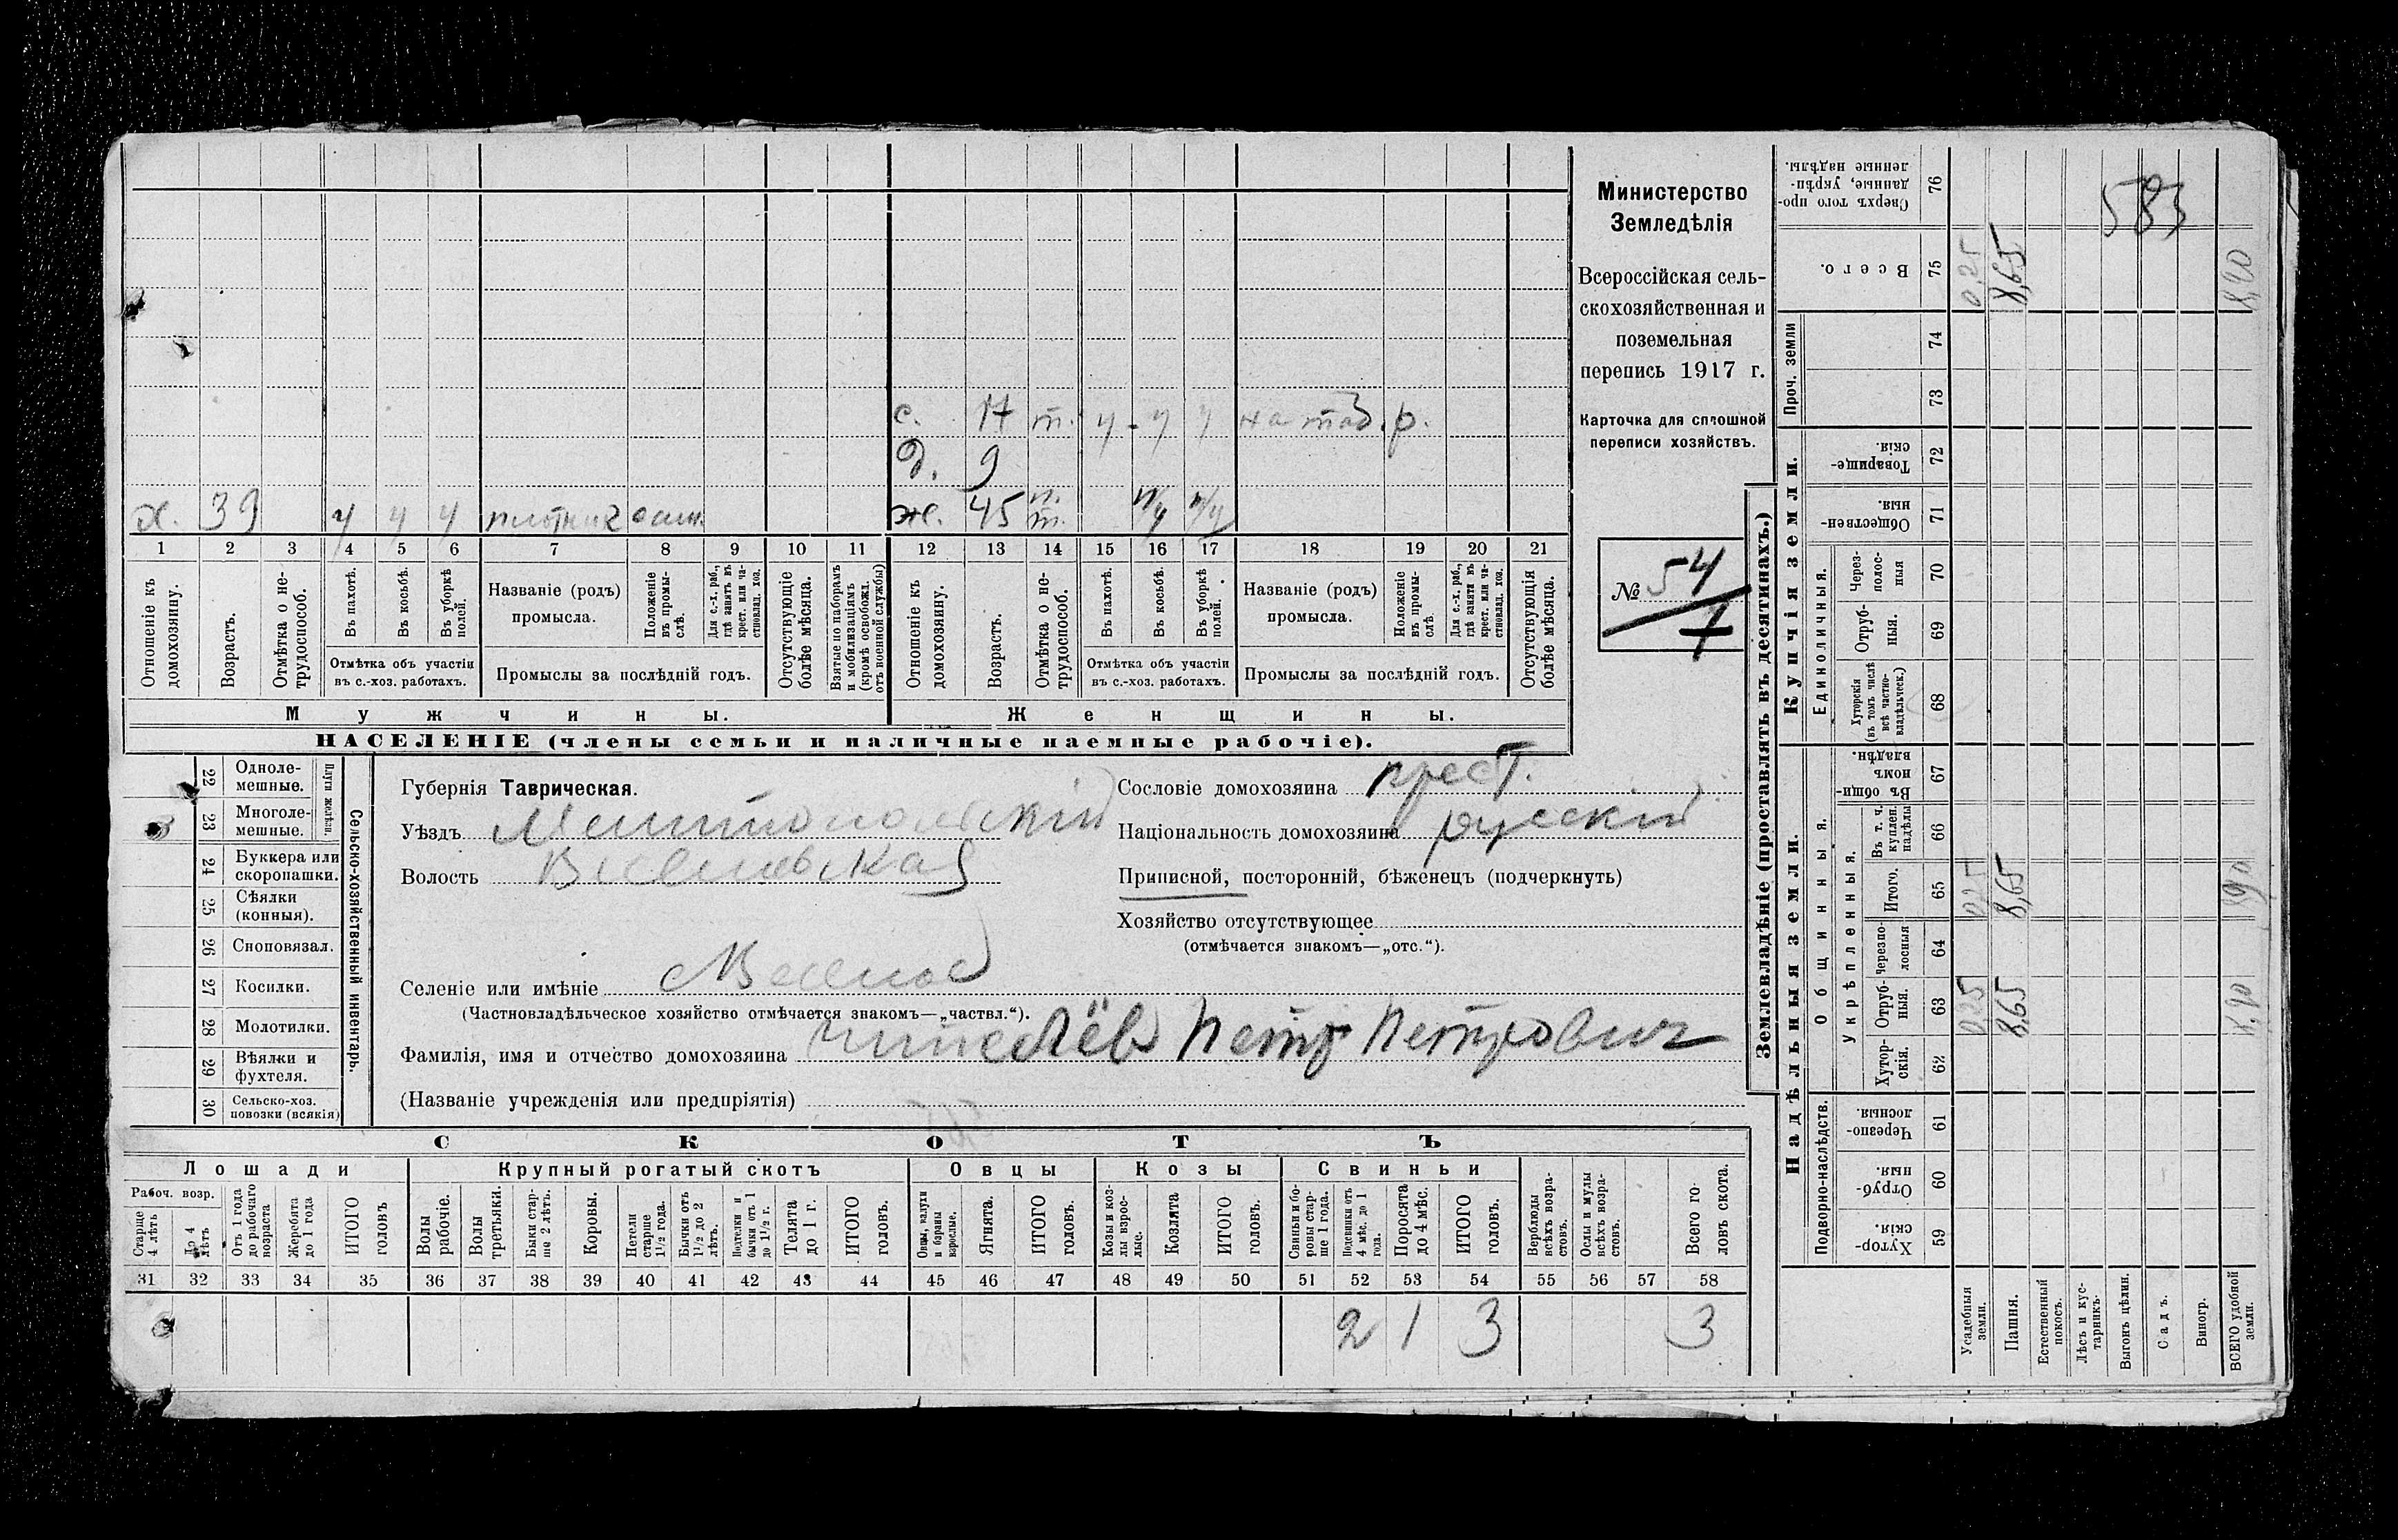 с. 17 т. ч - ч ч на таб. р.
д. 9
х. 39 ч ч ч плотник ж. 45 п. т. п/ч п/ч
1 2 3 4 5 6 7 8 9 10 11 12 13 14 15 16 17 18 19 20 21
Отношеніе къ домохозяину.
Возрастъ.
Отмѣтка о не-
трудоспособ.
Въ пахотѣ.
Въ косьбѣ.
Въ уборкѣ
полей.
Отмѣтка объ участіи
въ с.-хоз. работахъ.
Названіе (родъ)
промысла.
Положеніе
въ промы-
слѣ.
Для с.-х. раб.,
гдѣ занятъ въ
крест. или ча-
стновлад. хоз.
Промыслы за послѣдній годъ.
Отсутствующіе
болѣе мѣсяца.
Взятые по наборамъ
и мобилизаціямъ
(кромѣ освобожд.
отъ военной службы)
Отношеніе къ
домохозяину.
Возрастъ.
Отмѣтка о не-
трудоспособ.
Въ пахотѣ.
Въ косьбѣ.
Въ уборкѣ
полей.
Отмѣтка объ участіи
въ с.-хоз. работахъ.
Названіе (родъ)
промысла.
Положеніе
въ промы-
слѣ
Для с.-х. раб.,
гдѣ заняты въ
крест. или ча-
стновлад. хоз.
Промыслы за послѣдній годъ.
Отсутствующія
болѣе мѣсяца.
Мужчины. Женщины.
НАСЕЛЕНІЕ (члены семьи и наличные наемные рабочіе).
Министерство
Земледѣлія
Всероссійская сель-
скохозяйственная и
поземельная
перепись 1917 г.
Карточка для сплошной
переписи хозяйствъ.
№ 54
7
22 Одноле-
мешные.
23 Многоле-
мешные.
Плуги желѣзн.
24 Буккера или
скоропашки.
25 Сѣялки
(конныя).
26 Сноповязал.
27 Косилки.
28 Молотилки.
29 Вѣялки и
фухтеля.
30 Сельско-хоз.
повозки (всякія)
Сельско-хозяйственный инвентарь.
Губернія Таврическая.
Уѣздъ Мелитопольскій
Волость
Селеніе или имѣніе
(Частновладѣльческое хозяйство отмѣчается знакомъ—„частвл.“).
Фамилія, имя и отчество домохозяина Петр Петрович
(Названіе учрежденія или предпріятія)
Сословіе домохозяина крест.
Національность домохозяина русскій
Приписной, посторонній, бѣженецъ (подчеркнуть)
Хозяйство отсутствующее
(отмѣчается знакомъ—„отс.“).
СКОТЪ
Лошади Крупный рогатый скотъ Овцы Козы Свиньи
Рабоч. возр.
Старше
4 лѣтъ
До 4
лѣтъ
Отъ 1 года
до рабочаго
возраста
Жеребята
до 1 года
ИТОГО
головъ
Волы
рабочіе.
Волы
третьяки.
Быки стар-
ше 2 лѣтъ.
Коровы.
Нетели
старше
1½ года.
Бычки отъ
1½ до 2
лѣтъ.
Подтелки и
бычки отъ 1
до 1½ г.
Телята
до 1 г.
ИТОГО
головъ.
Овцы, валухи
и бараны
взрослые.
Ягнята.
ИТОГО
головъ.
Козы и коз-
лы взрос-
лые.
Козлята
ИТОГО
головъ.
Свиньи и бо-
ровы стар-
ше 1 года.
Подсвинки отъ
4 мѣс. до 1
года.
Поросята
до 4 мѣс.
ИТОГО
головъ.
Верблюды
всѣхъ возра-
стовъ.
Ослы и мулы
всѣхъ возра-
стовъ.
Всего го-
ловъ скота.
31 32 33 34 35 36 37 38 39 40 41 42 43 44 45 46 47 48 49 50 51 52 53 54 55 56 57 58
2 1 3 3
Землевладѣніе (проставлять въ десятинахъ.)
Надѣльныя земли. Купчія земли. Проч. земли
Подворно-наслѣдств.
Общинныя.
Укрѣпленныя.
Единоличныя.
Хутор-
скія. 59
Отруб-
ныя. 60
Черезпо-
лосныя. 61
Хутор-
скія. 62
Отруб-
ныя. 63
Черезпо-
лосныя 64
Итого. 65
Въ т. ч.
куплен.
надѣлы 66
Въ общи-
номъ
владѣн. 67
Хуторскія
(въ томъ числѣ
всѣ частно-
владѣльческ.) 68
Отруб-
ныя. 69
Через-
полос-
ныя 70
Обществен-
ныя. 71
Товарище-
скія. 72
73
74
Всего. 75
Сверхъ того про-
данные, укрѣп-
ленные надѣлы. 76
Усадебныя
земли.
Пашня.
Естественный
покосъ.
Лѣсъ и кус-
тарникъ.
Выгонъ цѣлин.
Садъ.
Виногр.
ВСЕГО удобной
земли.
0,25 0,25 0,25
8,65 8,65 8,65
8,90 8,90 8,90
583